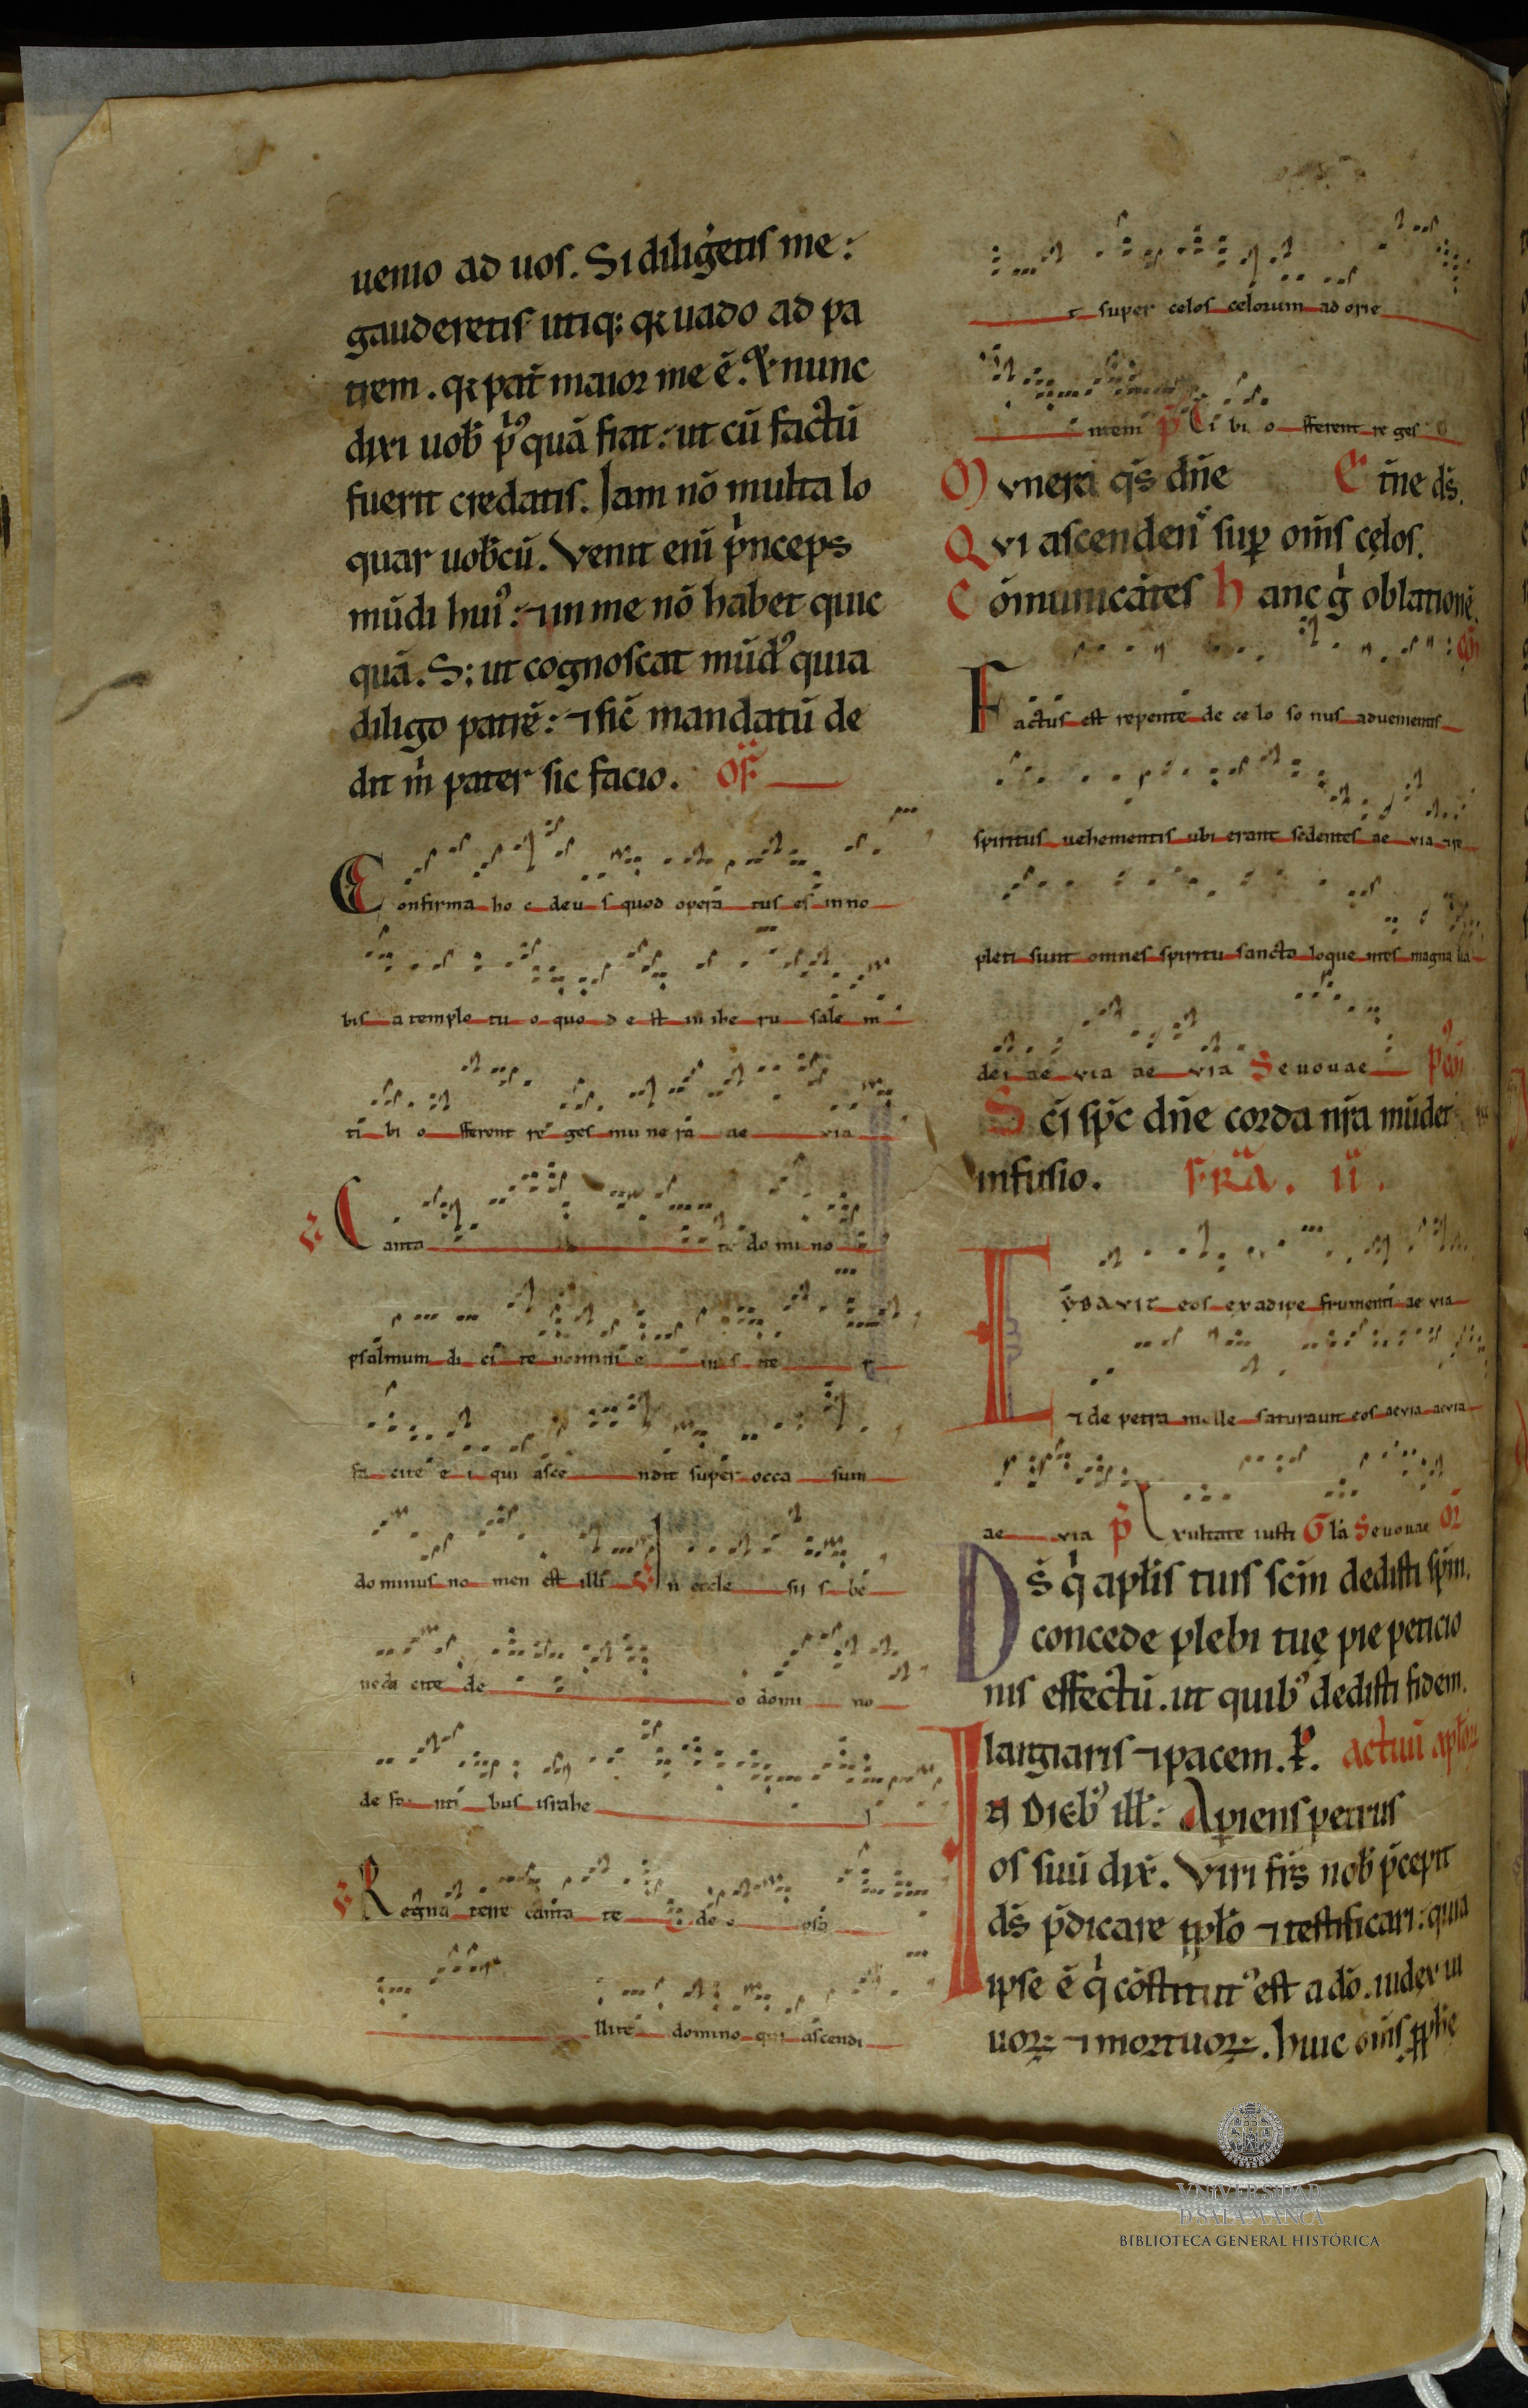 uenio ad uos. Si diligeretis me:
gauderetis utiq; qꝛ uado ad pa
trem. qꝛ pat̄ maior me ē. Et nunc
dixi uob̄ p̓usquā fiat: ut cū factū
fuerit credatis. Iam nō multa lo
quar uob̄cū. Venit eni̅ p̓nceps
mūdi huiꝰ: ⁊ in me nō habet quic
quā. S; ut cognoscat mūdꝰ quia
diligo patrē: ⁊ sic̄ mandatū de
dit m̓ pater sic facio. of
Confirma ho c deu s quod opera tus es in no
bis a templo tu o quo d e st in ihe ru sale m
ti bi o fferent re ges mu ne ra ae via
Canta te do mi no
psalmum di ci te nomini e ius ite r
fa cite e i qui asce ndit super occa sum
dominus no men est illi In eccle sii s be
nedi cite de o domi no
de fo nti bus israhe l
Regna terre canta te de o psa
llite domino qui ascendi
t super celos celorum ad orie
ntem p̄ Ti bi o fferent re ges
Mvnera q̄s dn̄e Et̄ne ds̄.
Qvi ascendens sup om̄s cęlos.
Cōmunicātes hanc g̓ oblationē.
Factus est repente de ce lo so nus aduenientis co̅
spiritus uehementis ubi erant sedentes ae via
pleti sunt omnes spiritu sancto loque ntes magna lia
dei ae via ae via Seuouae p̄co̅
Sci̅ sp̄c dn̄e corda nr̄a mūdet
infusio. FR̄A. II.
Cybavit eos ex adipe frumenti ae via
⁊ de petra melle saturauit eos aevia aevia
ae via p̄ Exultate iusti Gl̄a Seuouae
Ds̄ q̓ apl̄is tuis scm̄ dedisti sp̄m.
concede plebi tuę pie peticio
nis effectū. ut quibꝰ dedisti fidem.
largiaris ⁊ pacem. P. actuū aplo̅ꝝ
In diebꝰ ill̄: Apiens petrus
os suū dix̄. Viri fr̄s nob̄ p̄cepit
ds̄ p̄dicare ppl̄o ⁊ testificari: quia
ipse ē q̓ cōstitutꝰ est a dō. iudex ui
uoꝝ ⁊ mortuoꝝ. huic om̄s pphe
VNiVERSiTAD
D SALAMANCA
BIBLIOTECA GENERAL HISTÓRICA